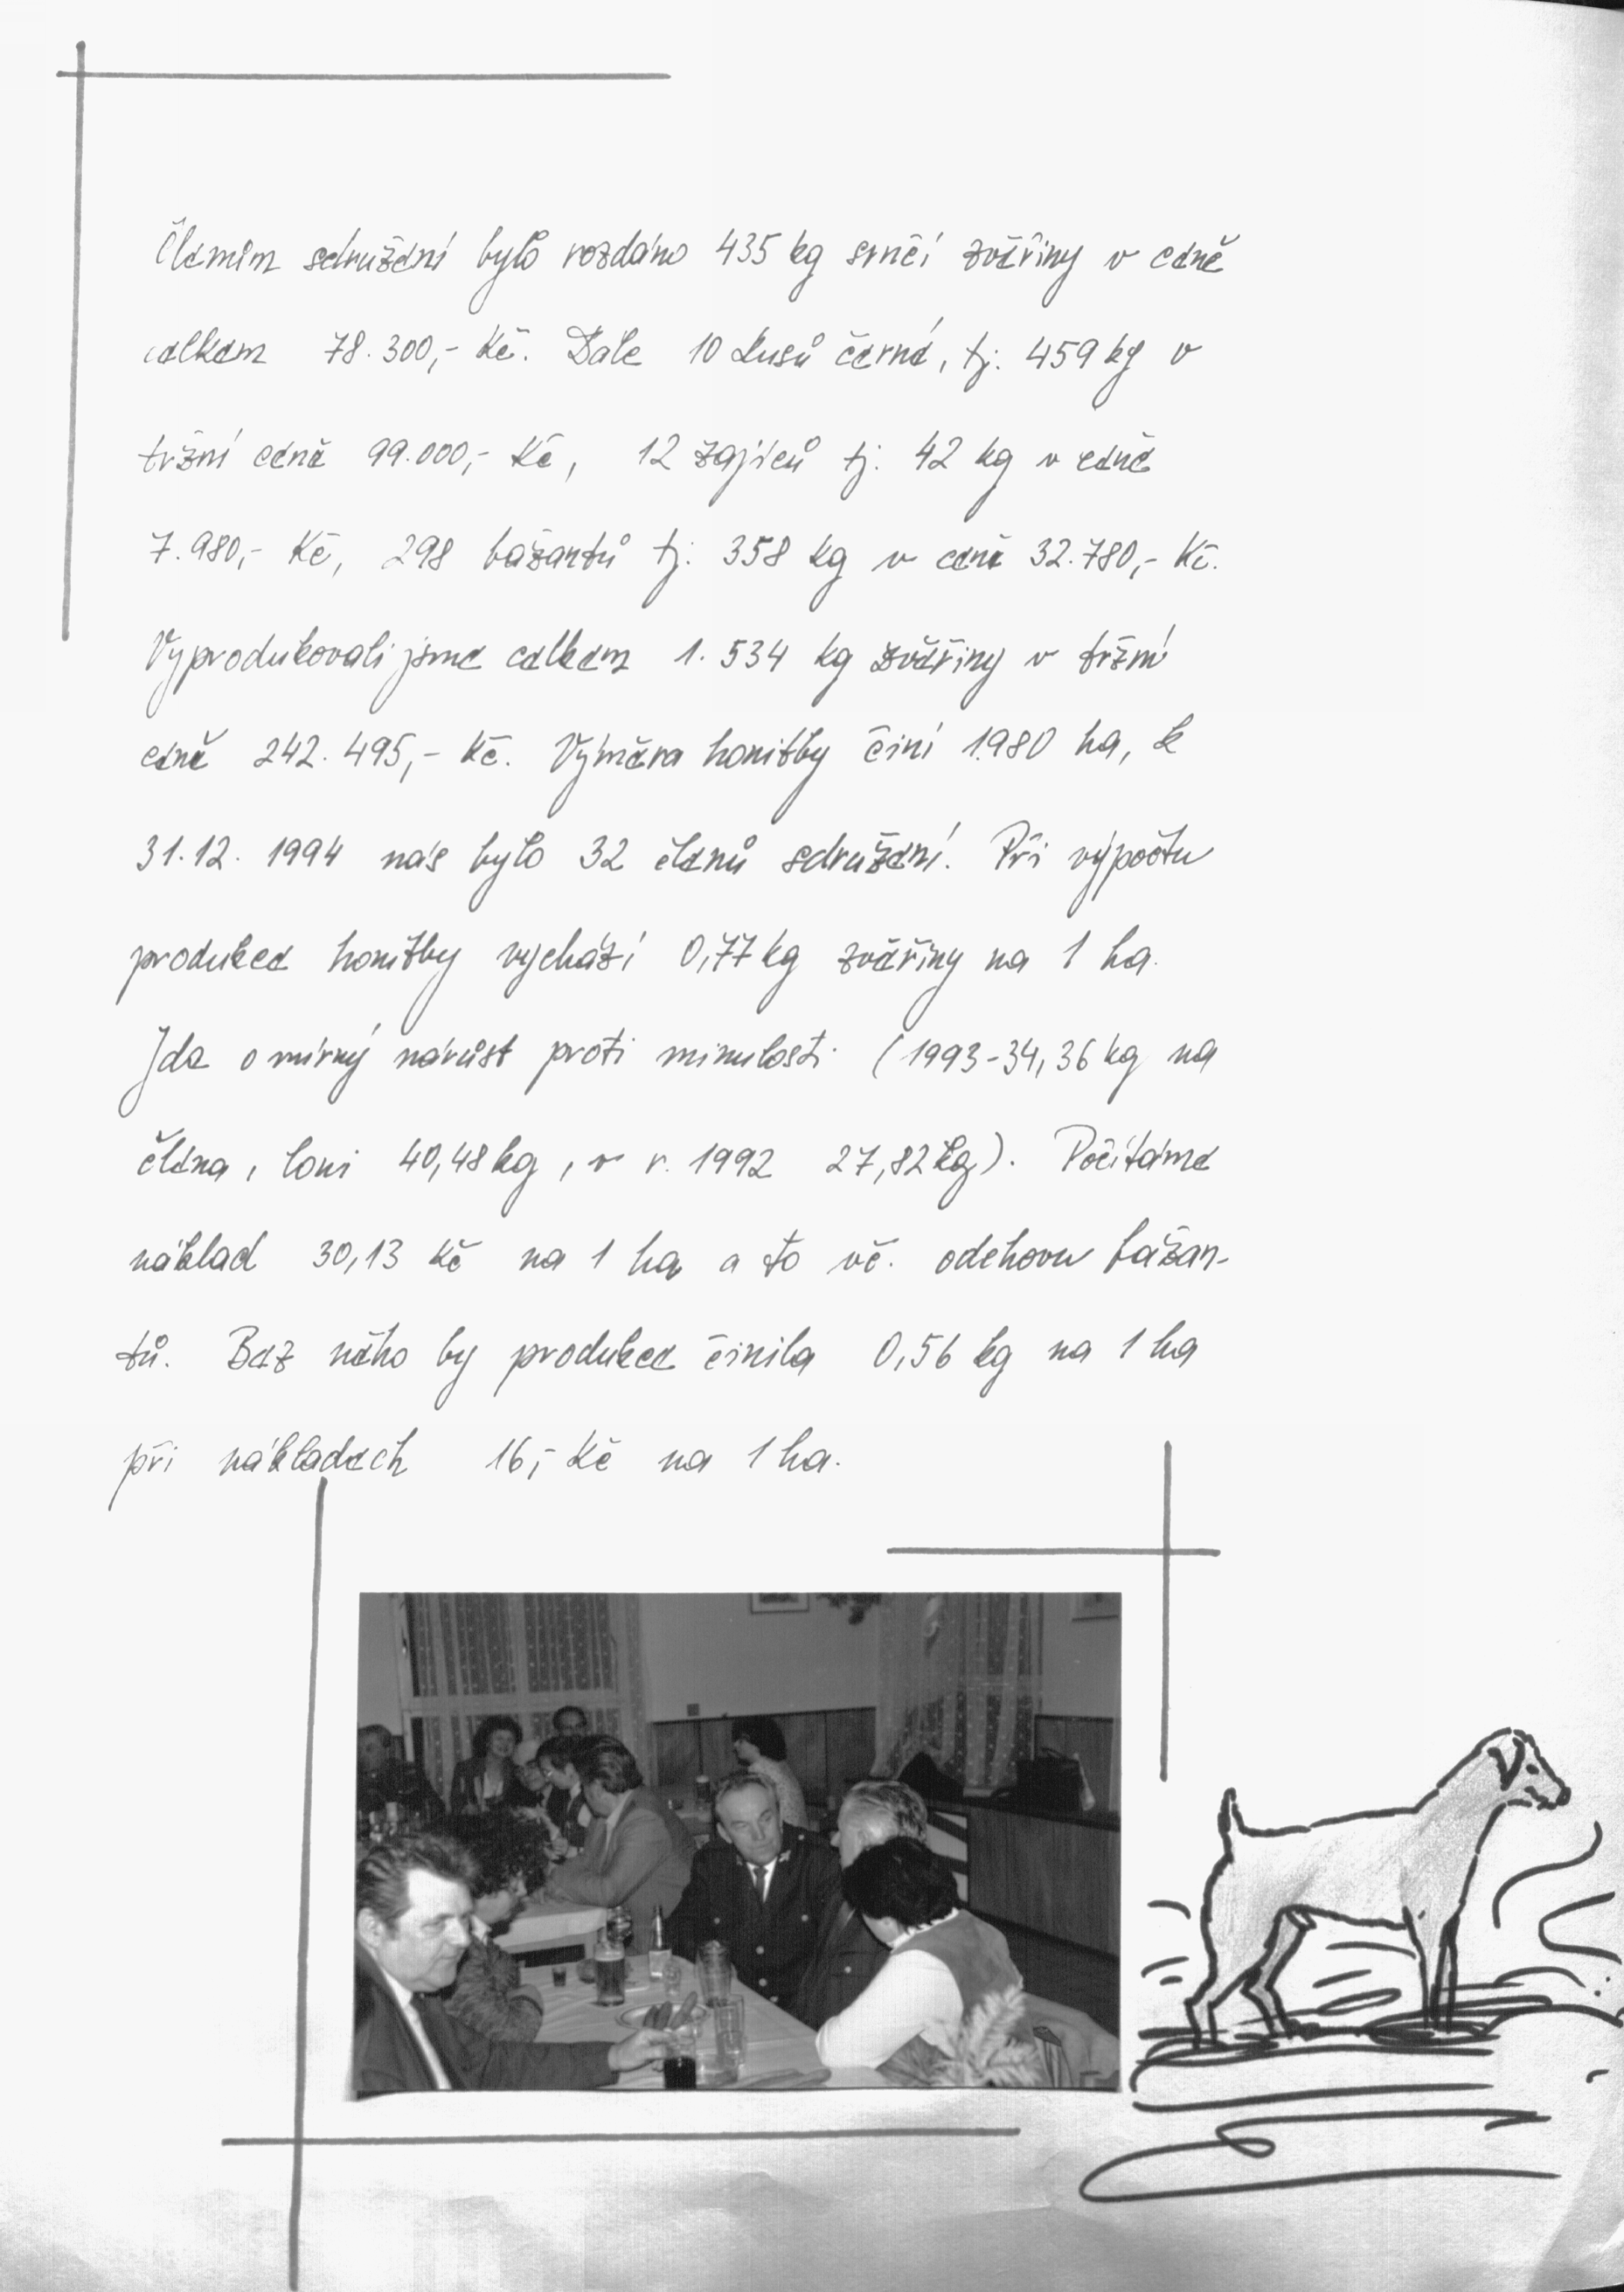 Členům sdružení bylo rozdáno 435 kg srnčí zvěřiny v ceně
celkem 78.300,- Kč. Dále 10 kusů černé, tj. 459 kg v
tržní ceně 99.000,- Kč, 12 zajíců tj. 42 kg v ceně
7.980,- Kč, 298 bažantů tj. 358 kg v ceně 32.780,- Kč.
Vyprodukovali jsme celkem 1.534 kg zvěřiny v tržní
ceně 242.495,- Kč. Výměra honitby činí 1.980 ha, k
31.12. 1994 nás bylo 32 členů sdružení. Při výpočtu
produkce honitby vychází 0,77 kg zvěřiny na 1 ha.
Jde o mírný nárůst proti minulosti (1993-34,36 kg na
člena, loni 40,48 kg, v r. 1992 27,82 kg). Počítáme
náklad 30,13 Kč na 1 ha a to vč. odchovu bažan-
tů. Bez něho by produkce činila 0,56 kg na 1 ha
při nákladech 16,- Kč na 1 ha.